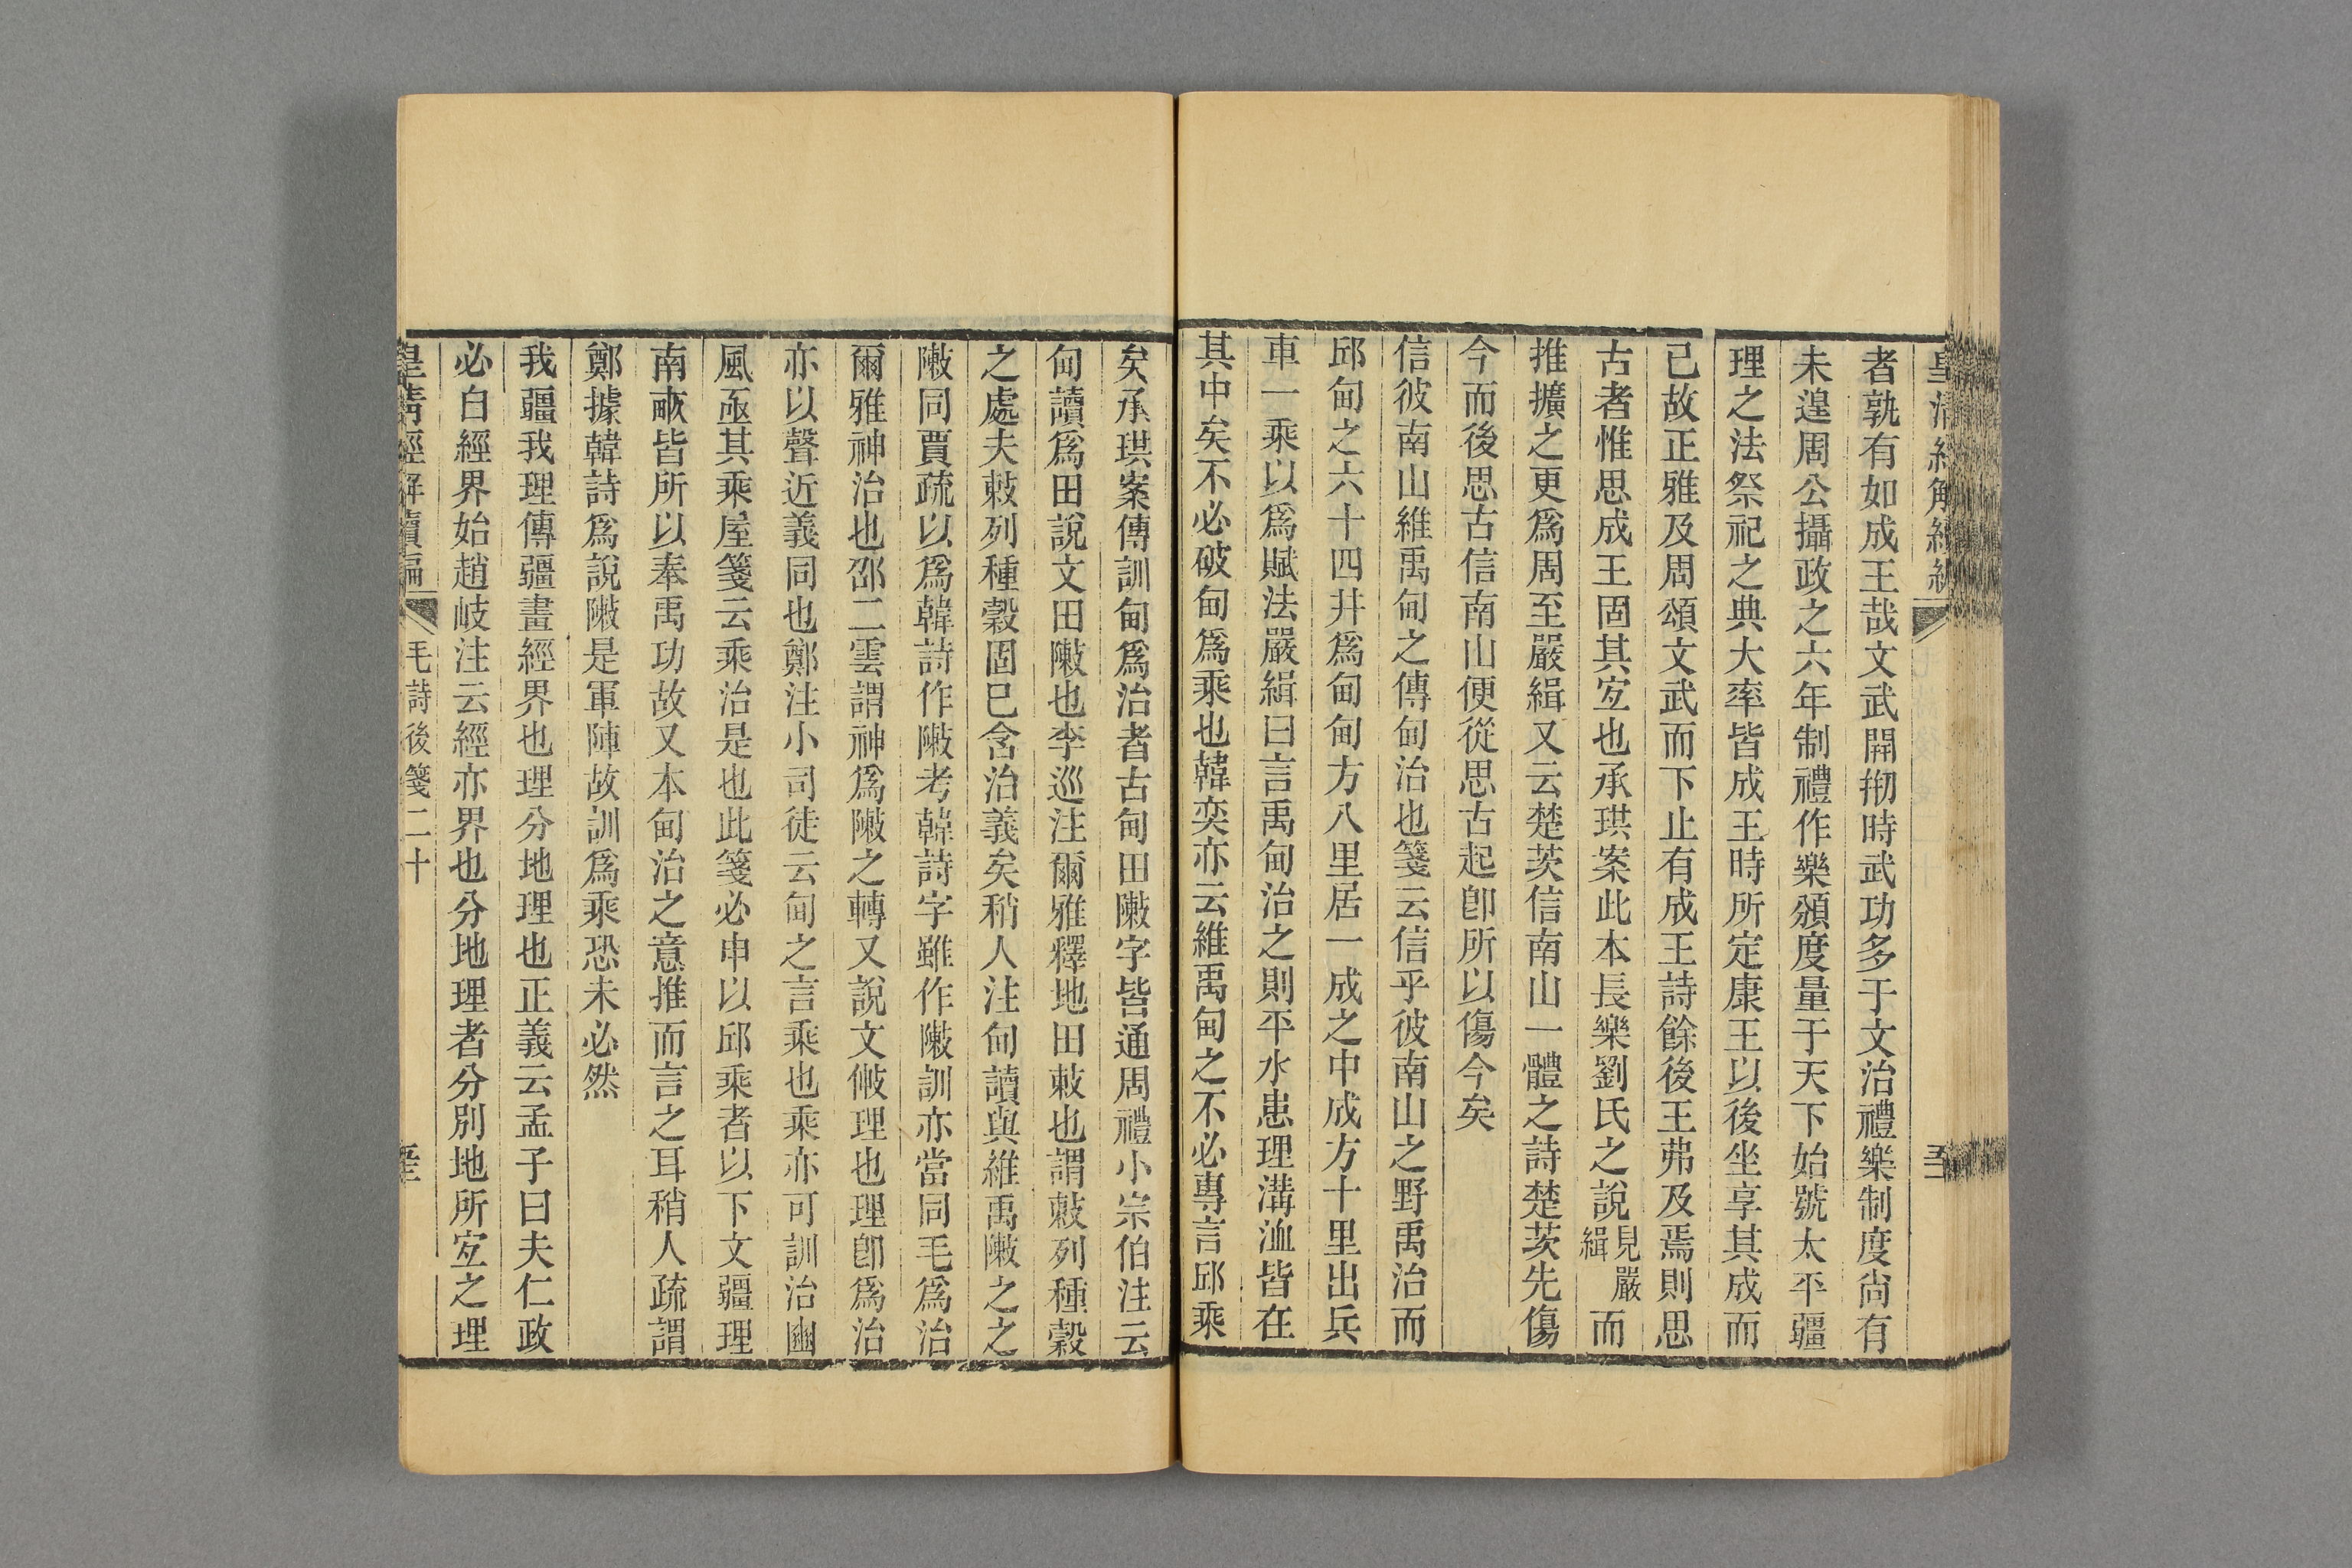 者孰有如成王哉文武開剏時武功多于文治禮樂制度尙有
未遑周公攝政之六年制禮作樂頒度量于天下始號太平疆
理之法祭祀之典大率皆成王時所定康王以後坐享其成而
已故正雅及周頌文武而下止有成王詩餘後王弗及焉則思
古者惟思成王固其宐也承珙案此本長樂劉氏之說見嚴緝而
推擴之更爲周至嚴緝又云楚茨信南山一體之詩楚茨先傷
今而後思古信南山便從思古起卽所以傷今矣
信彼南山維禹甸之傳甸治也箋云信乎彼南山之野禹治而
邱甸之六十四井爲甸甸方八里居一成之中成方十里出兵
車一乘以爲賦法嚴緝曰言禹甸治之則平水患理溝洫皆在
其中矣不必破甸爲乘也韓奕亦云維禹甸之不必專言邱乘
矣承珙案傳訓甸爲治者古甸田敶字皆通周禮小宗伯注云
甸讀爲田說文田敶也李巡注爾雅釋地田敕也謂敕列種穀
之處夫敕列種穀固已含治義矣稍人注甸讀與維禹敶之之
敶同賈疏以爲韓詩作敶考韓詩字雖作敶訓亦當同毛爲治
爾雅神治也邵二雲謂神爲敶之轉又說文敒理也理卽爲治
亦以聲近義同也鄭注小司徒云甸之言乘也乘亦可訓治豳
風亟其乘屋箋云乘治是也此箋必申以邱乘者以下文疆理
南畞皆所以奉禹功故又本甸治之意推而言之耳稍人疏謂
鄭據韓詩爲說敶是軍陣故訓爲乘恐未必然
我疆我理傳疆畫經界也理分地理也正義云孟子曰夫仁政
必自經界始趙岐注云經亦界也分地理者分別地所宐之理
皇淸經解續編 毛詩後箋二十